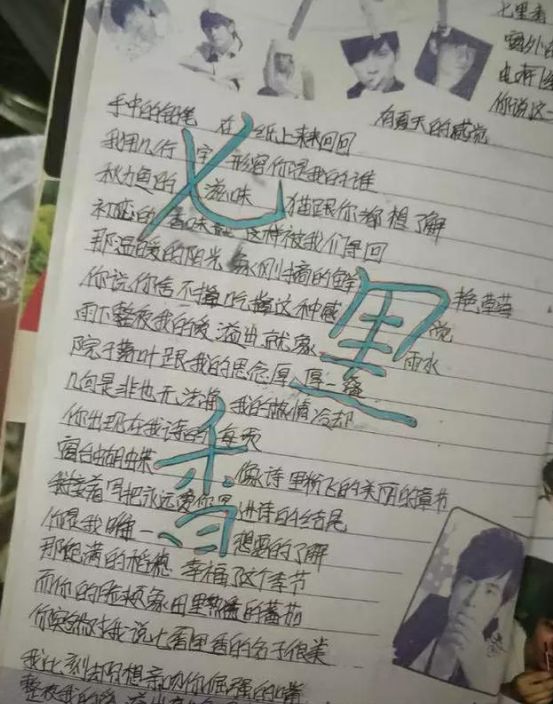 七里香
窗外
你说这一
有夏天的感觉
手中的铅笔 在纸上来来回回
我用几行字 形容你是我的谁
秋刀鱼的 滋味 猫跟你都想了解
初恋的香味 这样被我们寻回
那温暖的阳光 象刚摘的鲜艳草莓
你说你舍不得吃掉这种感觉
雨下整夜我的爱溢出就象 雨水
院子落叶跟我的思念厚厚一叠
几句是非也无法将我的热情冷却
你出现在我诗的每页
窗台蝴蝶 像诗里纷飞的美丽的章节
我接着写把永远爱你写进诗的结尾
你是我唯一想要的了解
那饱满的稻穗 幸福了这个季节
而你的脸颊象田里熟透的番茄
你突然对我说七里香的名字很美
我此刻却只想亲吻你倔强的嘴
整夜我的爱溢出
七里香